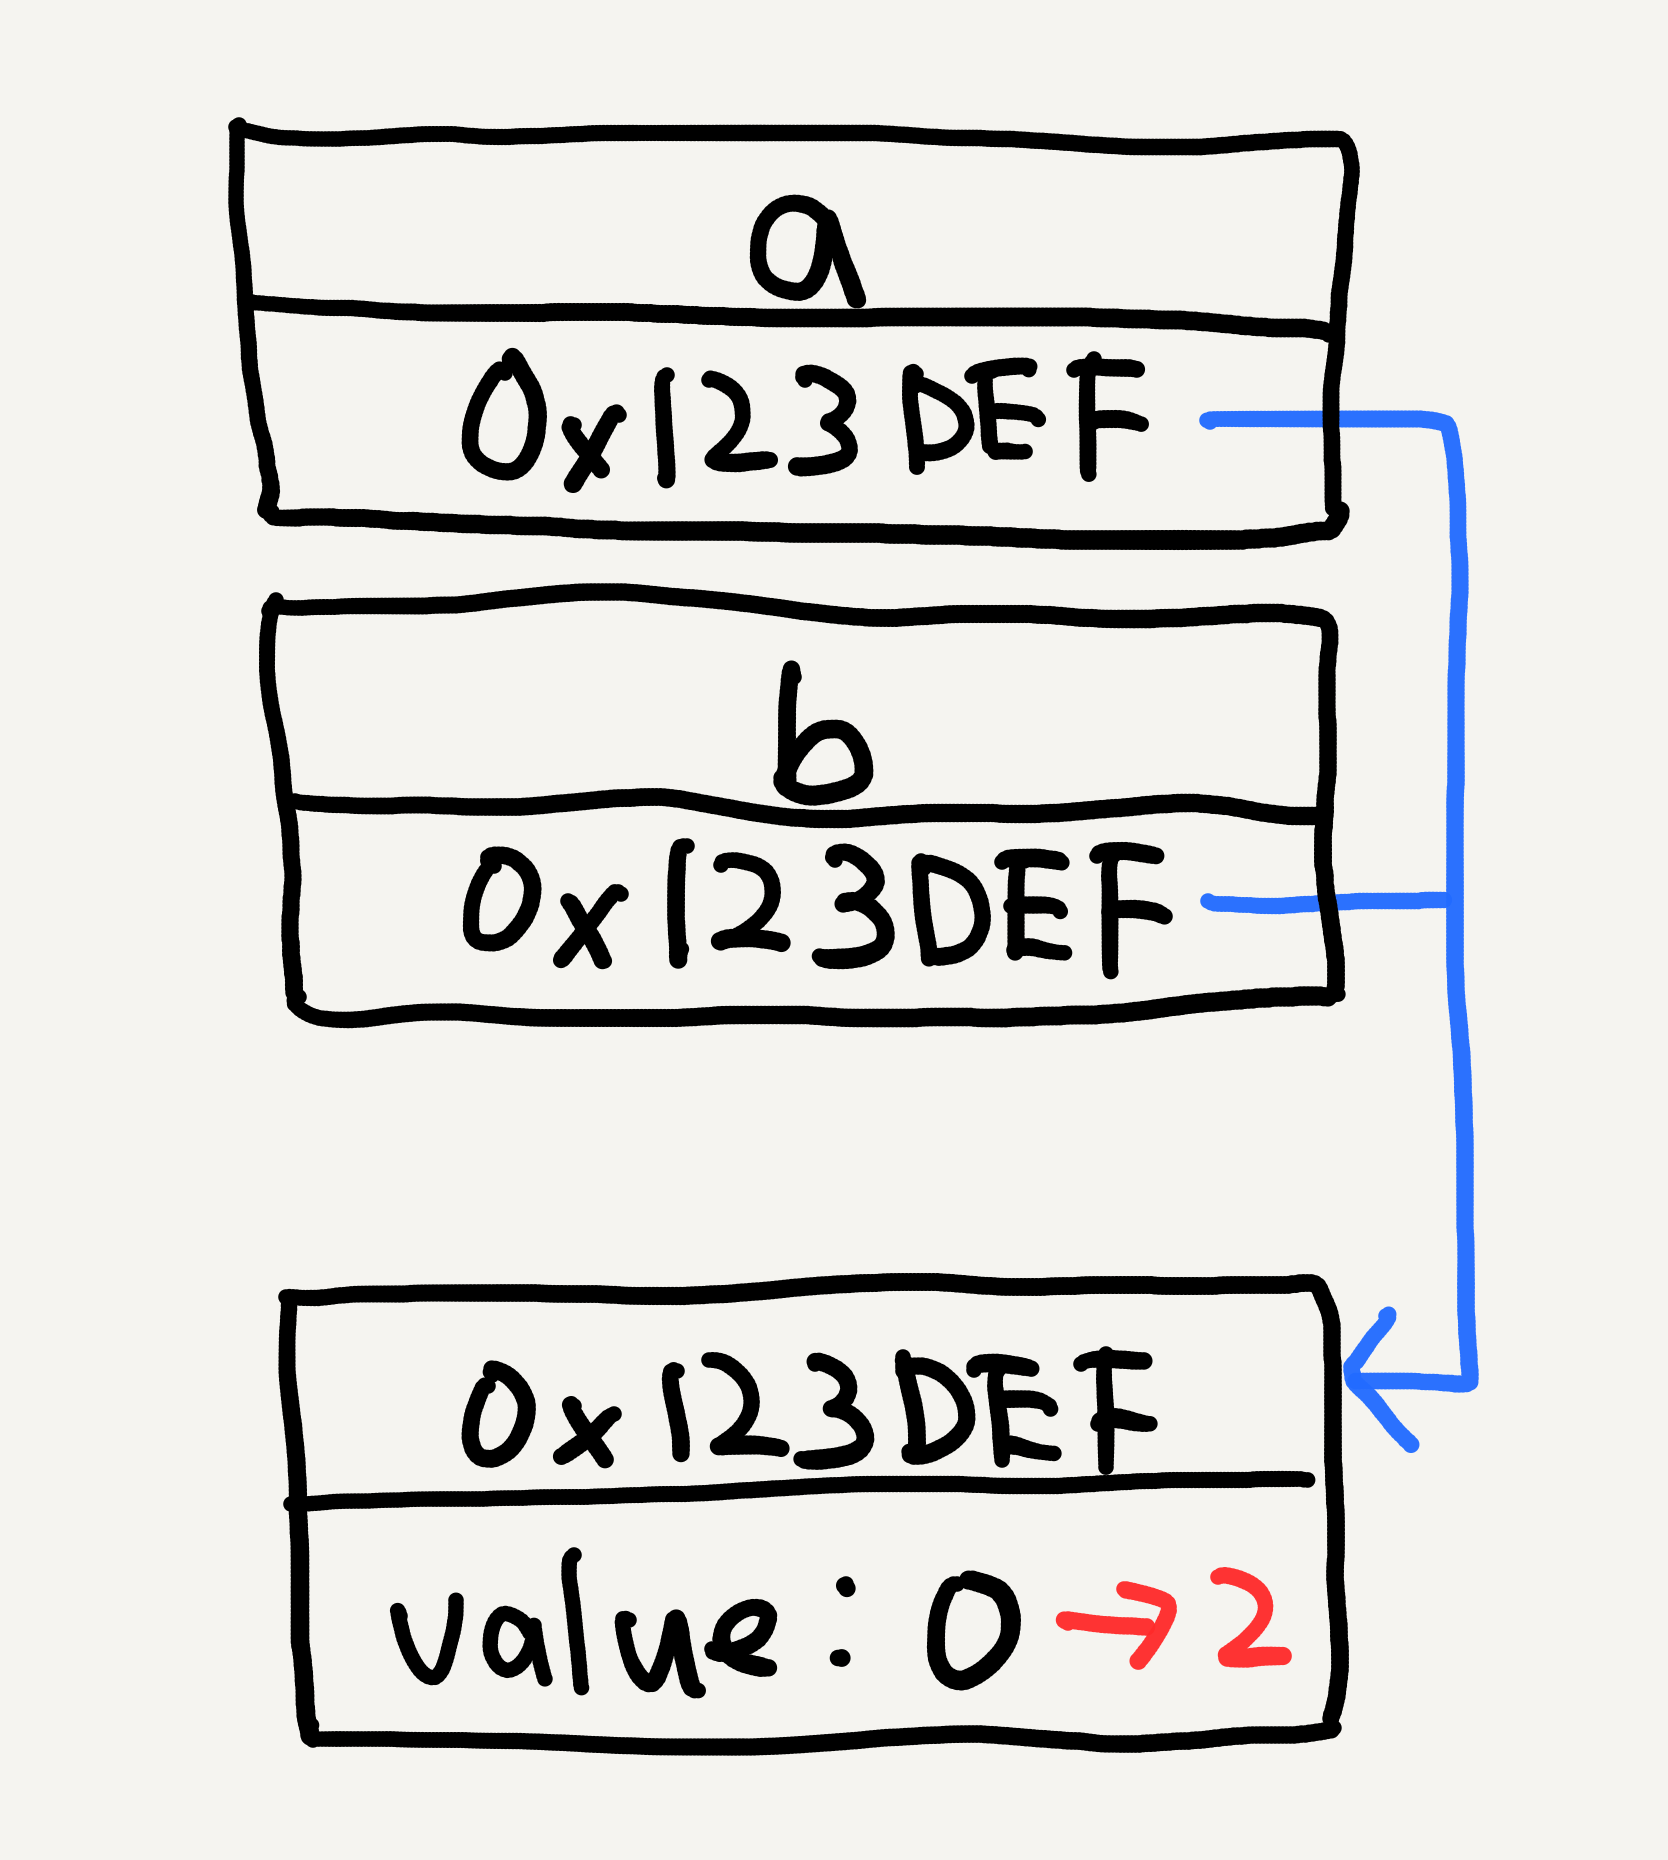 a
0x123DEF
b
0x123DEF
0x123DEF
value: 0 → 2